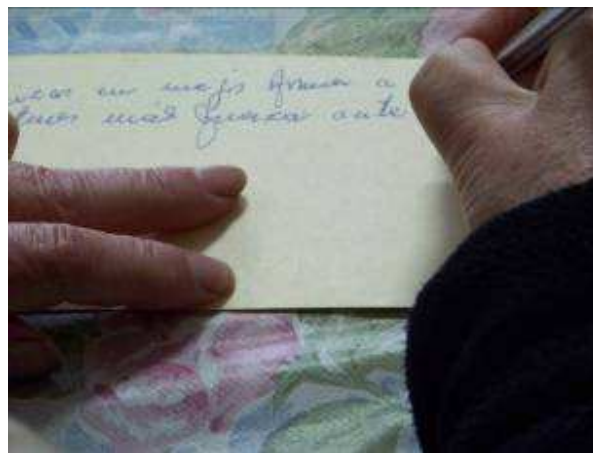 en mejor forma a
más fuerza ante